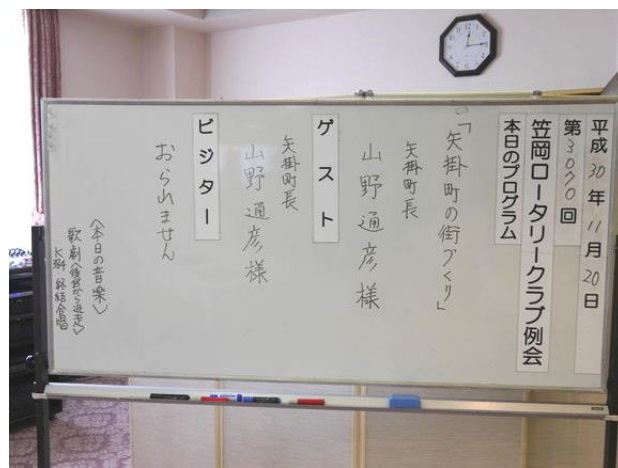 平成30年11月20日
第3070回
笠岡ロータリークラブ例会
本日のプログラム
「矢掛町の街づくり」
矢掛町長
山野通彦様
ゲスト
矢掛町長
山野通彦様
ビジター
おられません
〈本日の音楽〉
歌劇〈後宮から逃走〉
終結合唱